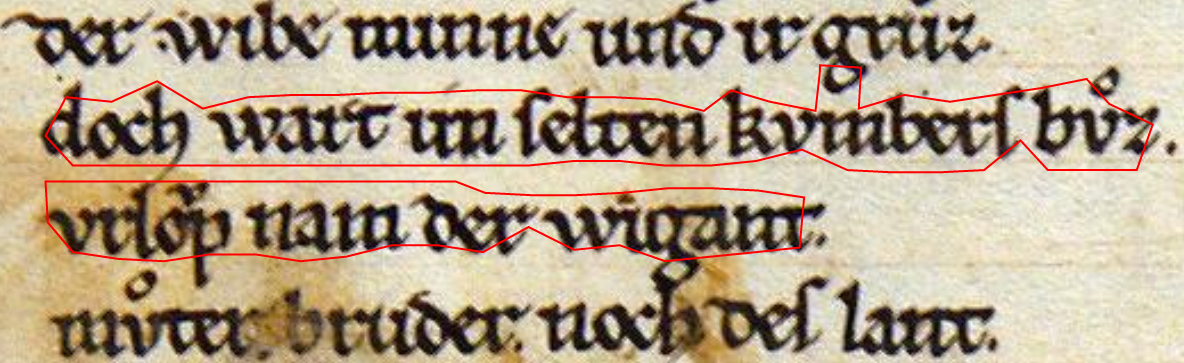 der wibe minne und ir grůz.
doch wart im selten kvmbers bůz.
vrlop̄ nam der wigant.
můter. bruder. noch des lant.